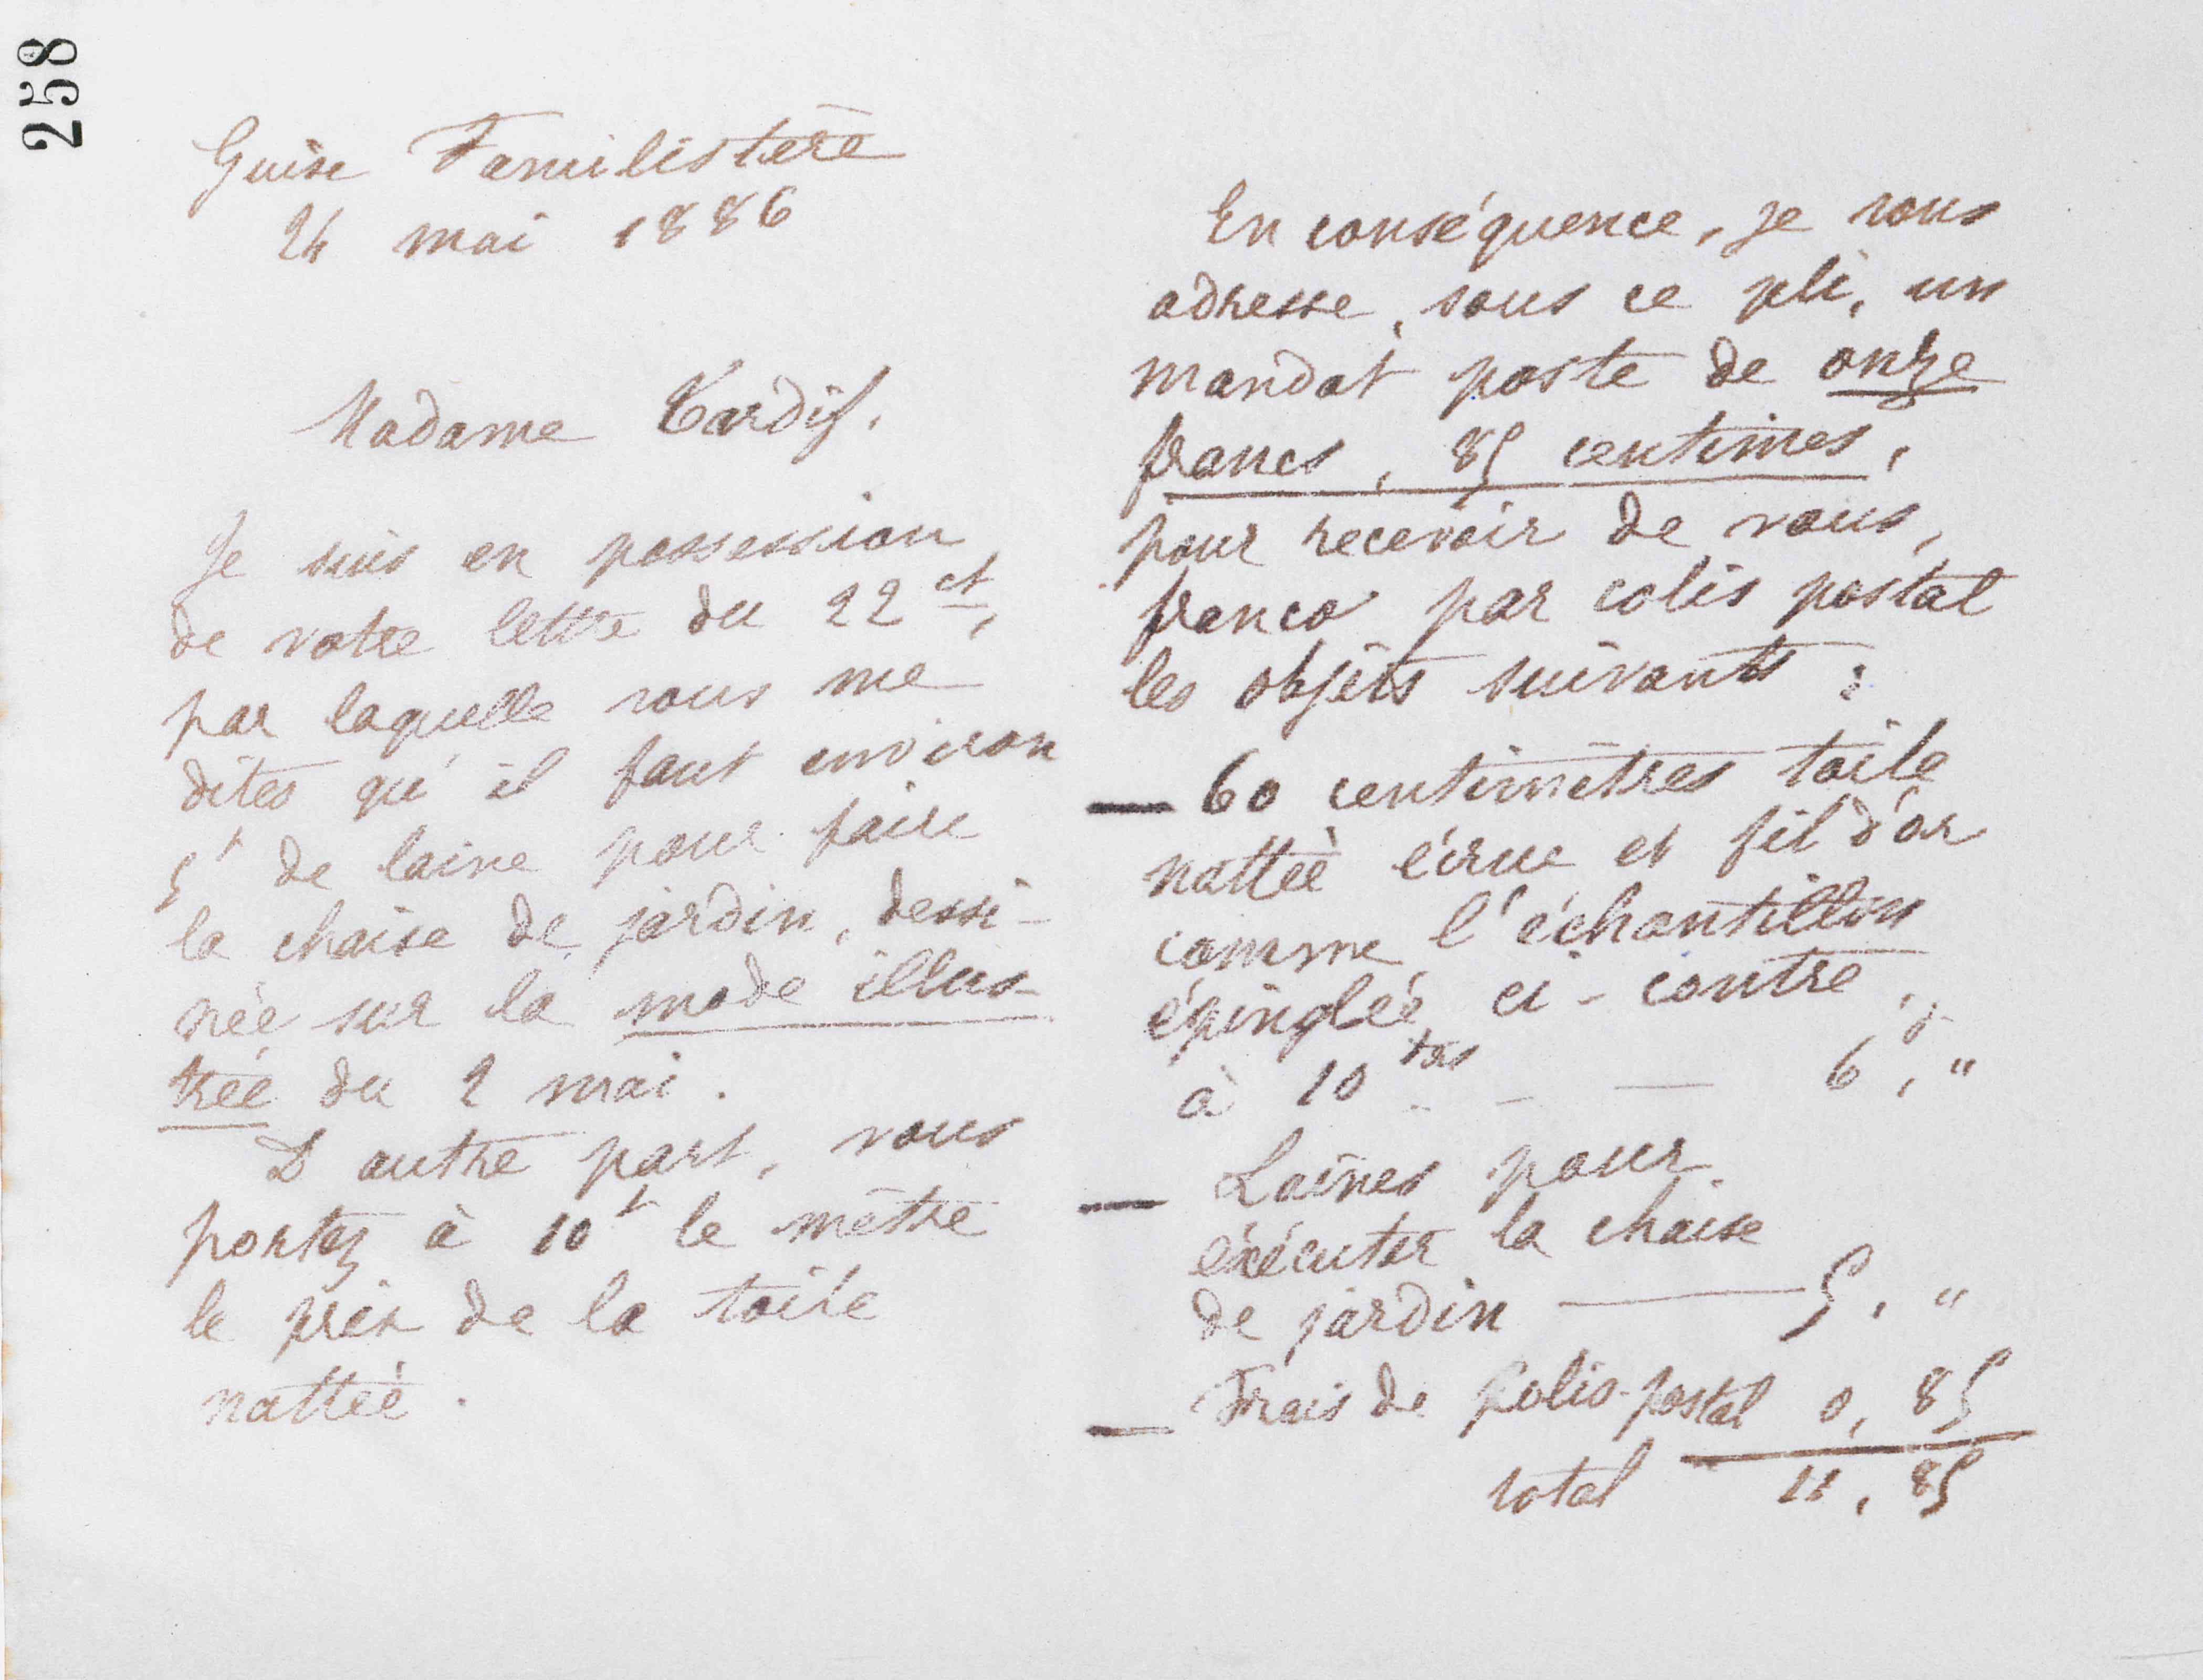 258
Guise Familistère
24 mai 1886
Madame Tardif,
Je suis en possession
de votre lettre du 22 ct,
par laquelle vous me
dites qu'il faut environ
5f de laine pour faire
la chaise de jardin, dessi-
née sur la mode illus-
trée du 2 mai.
D'autre part, vous
portez à 10f le mètre
le prix de la toile
nattée.
En conséquence, je vous
adresse, sous ce pli, un
mandat poste de onze
francs, 85 centimes,
pour recevoir de vous,
franco par colis postal
les objets suivants :
— 60 centimètres toile
nattée écrue et fil d'or
comme l'échantillon
épinglée ci-contre,
à 10 — 6, "
— Laines pour
éxécuter la chaise
de jardin — 5, "
— Frais de Colis-postal 0,85
total 11,85